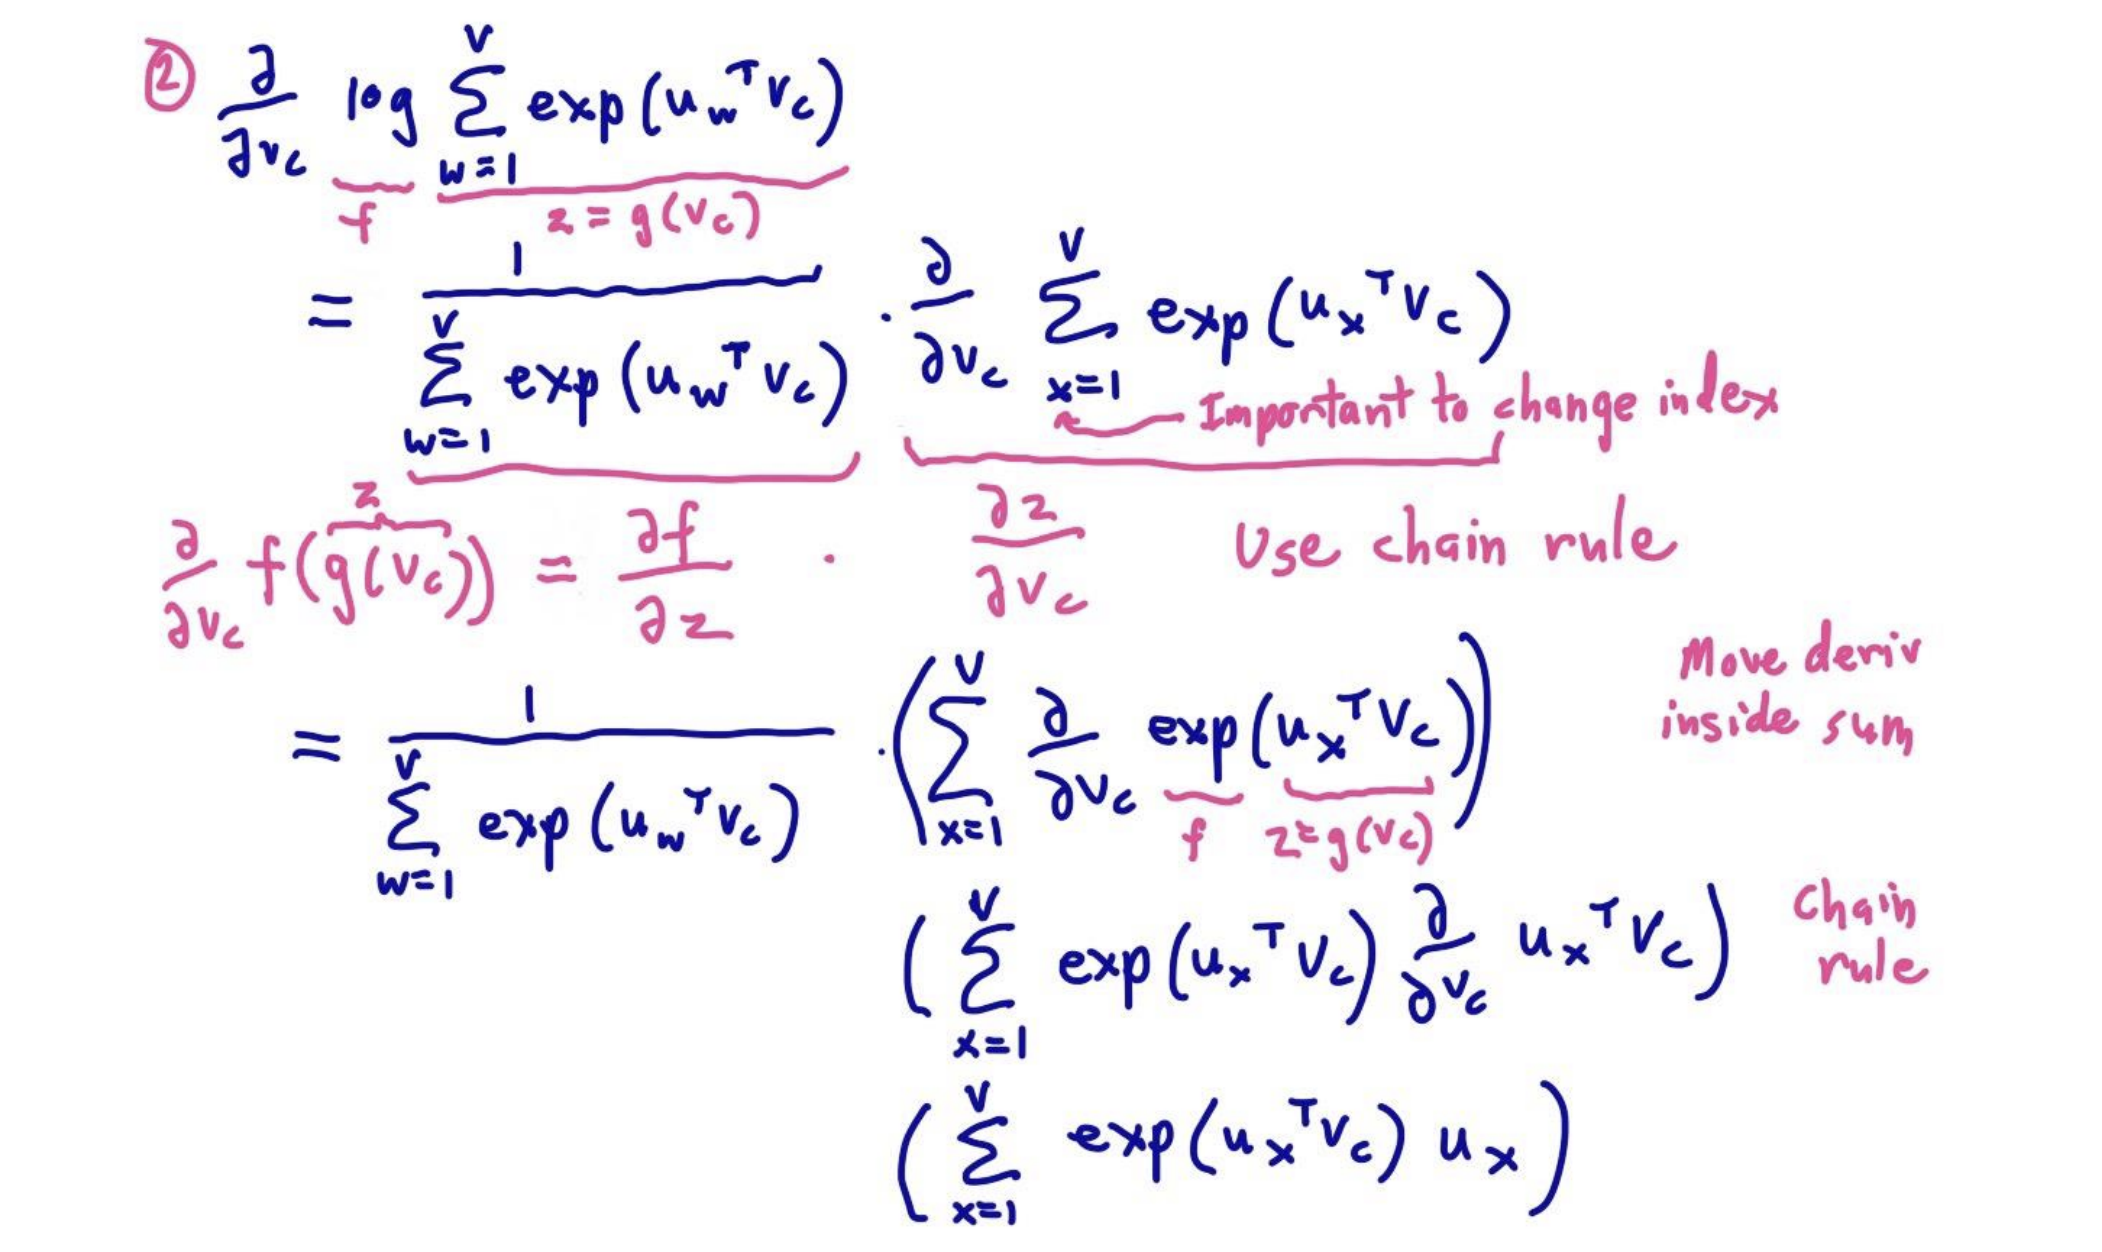 ② ∂/∂v_c log ∑_{w=1}^{V} exp(u_w^T v_c)
f z = g(v_c)
= 1 / ∑_{w=1}^{V} exp(u_w^T v_c) · ∂/∂v_c ∑_{x=1}^{V} exp(u_x^T v_c)
Important to change index
∂/∂v_c f(g(v_c)) = ∂f/∂z · ∂z/∂v_c Use chain rule
z
= 1 / ∑_{w=1}^{V} exp(u_w^T v_c) · (∑_{x=1}^{V} ∂/∂v_c exp(u_x^T v_c)) Move deriv
inside sum
f z=g(v_c)
(∑_{x=1}^{V} exp(u_x^T v_c) ∂/∂v_c u_x^T v_c) Chain
rule
(∑_{x=1}^{V} exp(u_x^T v_c) u_x)